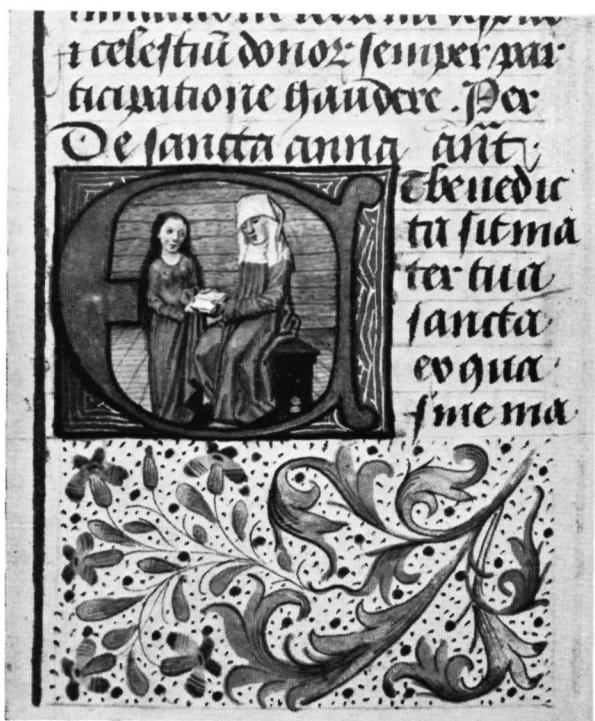 ⁊ celestiū donoꝝ semper par
ticipatione gaudere. Per
De sancta anna an̄t
Et benedic
ta sit ma
ter tua
sancta
ex qua
sine ma